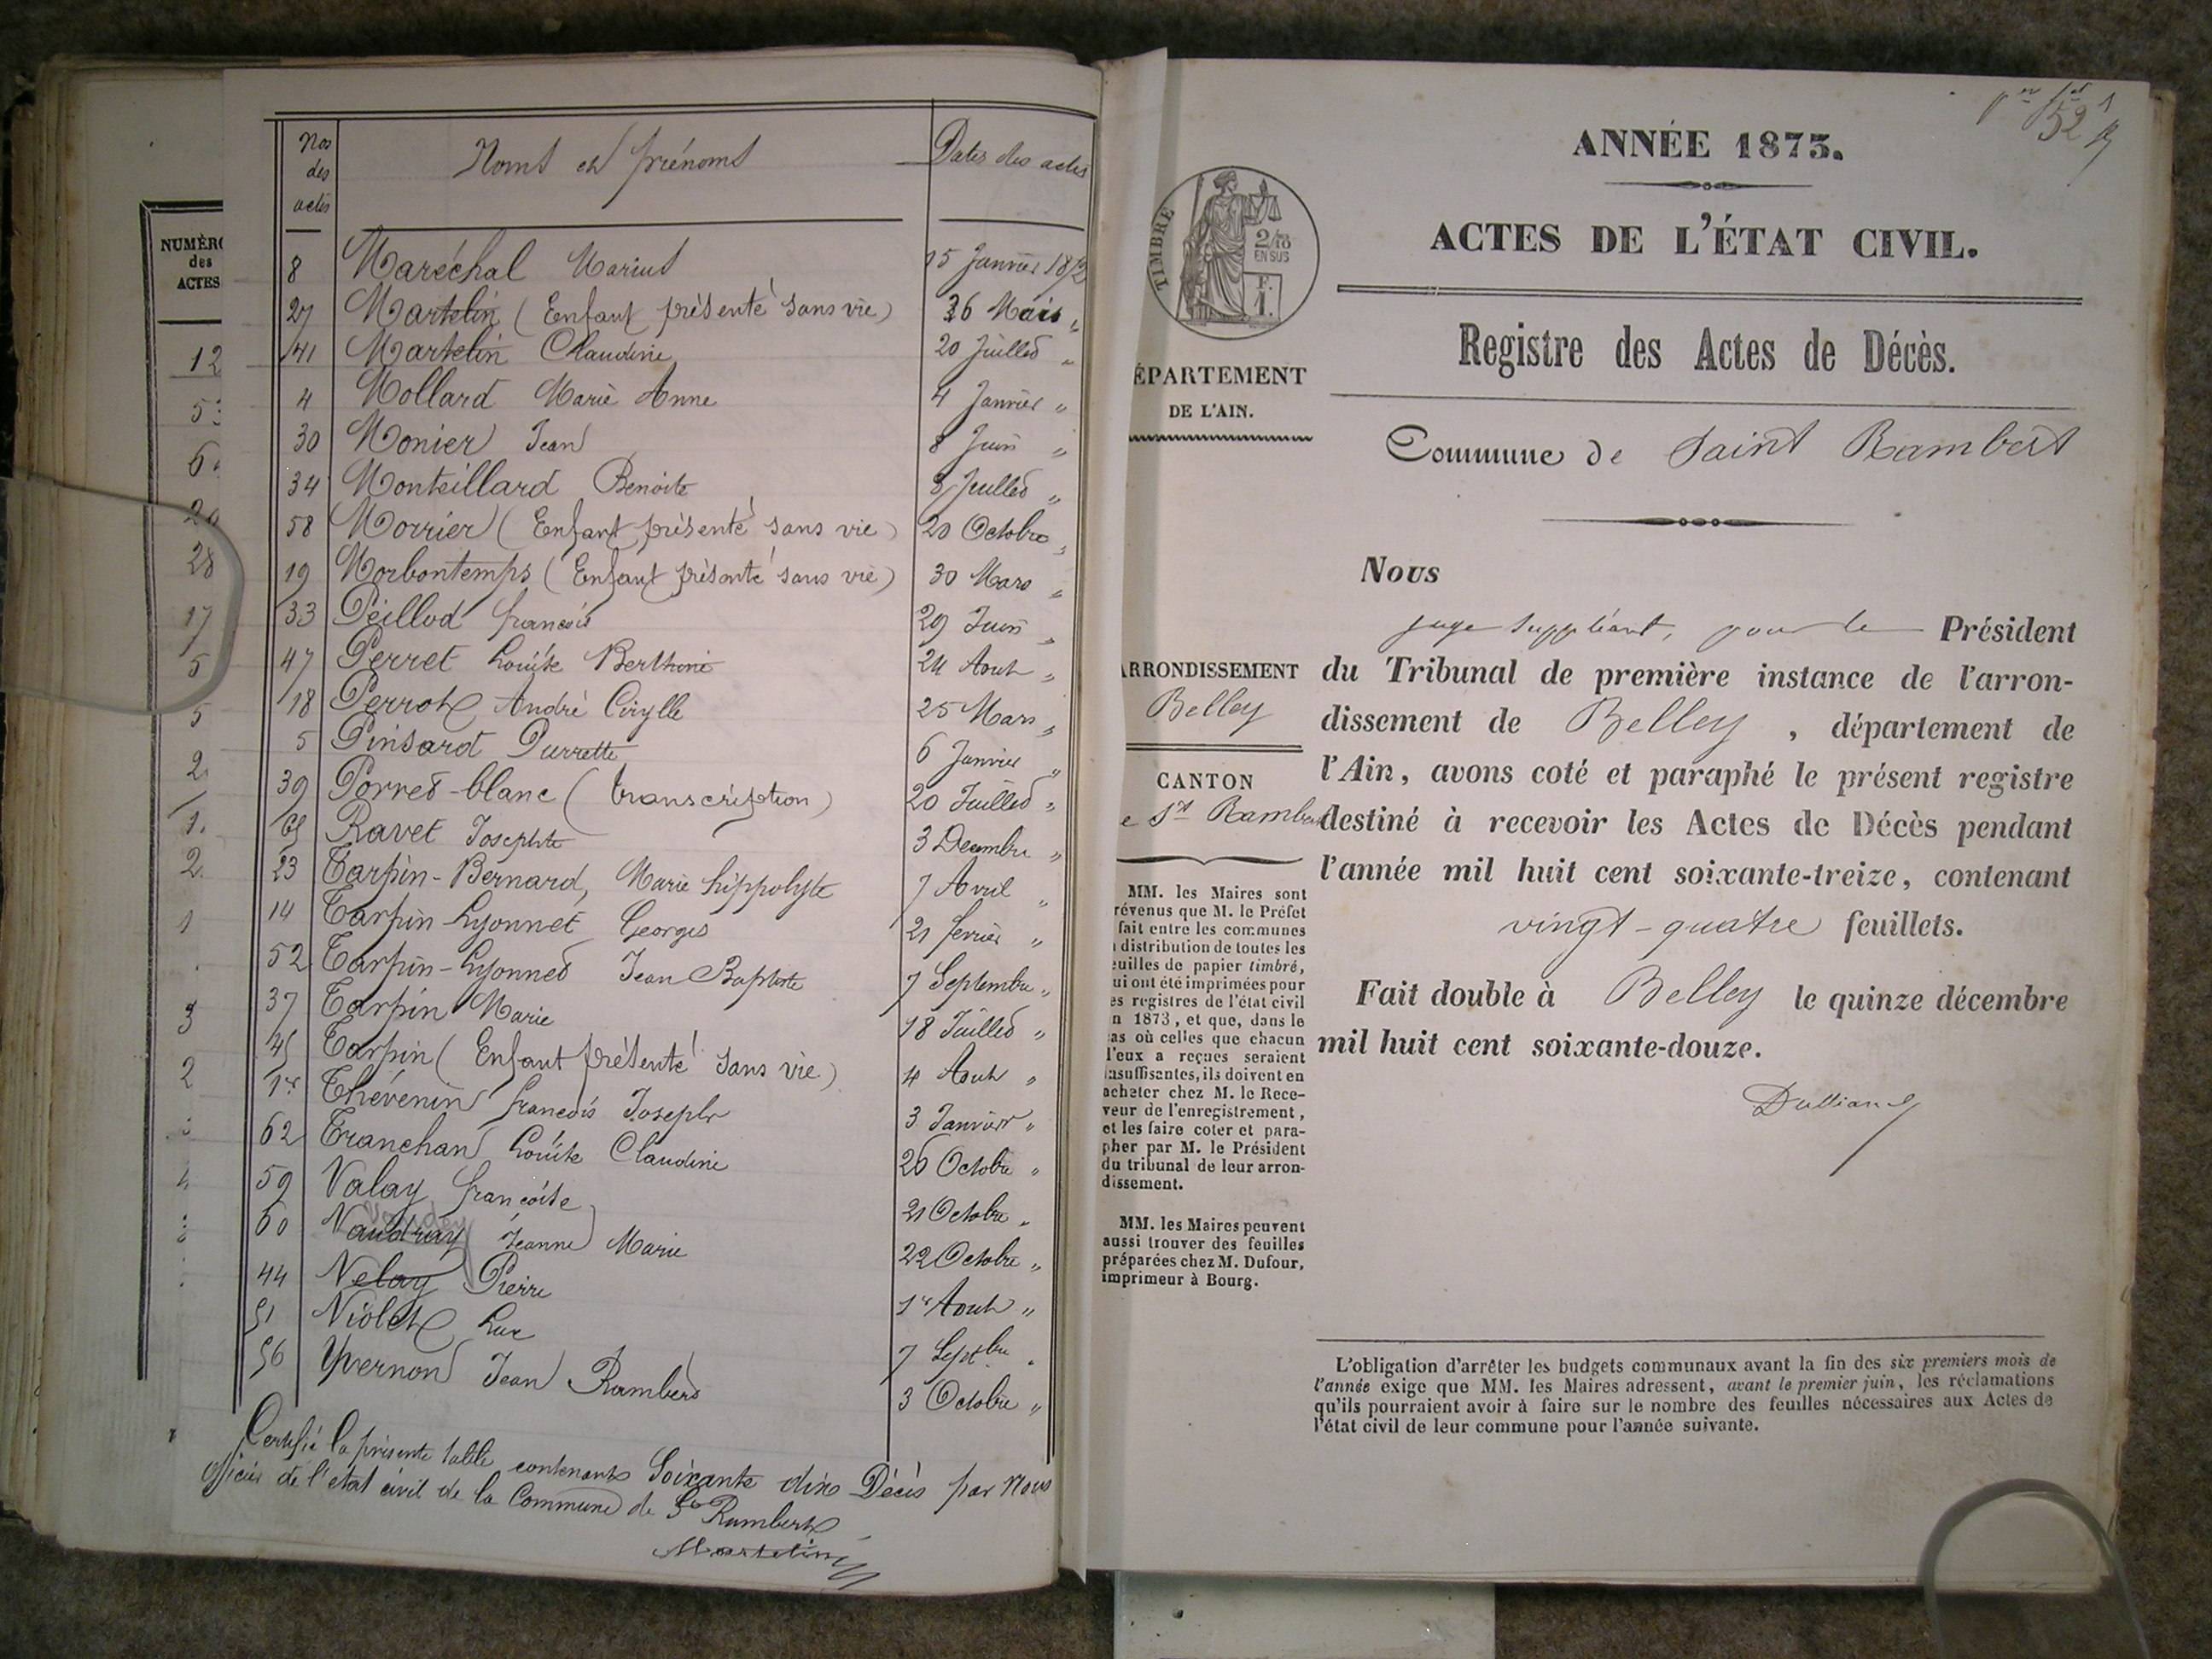 Nos des actes Noms et prénoms Dates des actes
8 Maréchal Marius 15 Janvier 1872
27 Martelin (Enfant présenté sans vie) 26 Mai "
41 Martelin Claudine 20 Juillet "
4 Mollard Marie Anne 4 Janvier "
30 Monier Jean 8 Juin "
34 Monteillard Benoite 8 Juillet "
58 Morrier (Enfant présenté sans vie) 20 Octobre "
19 Morbontemps (Enfant présenté sans vie) 30 Mars "
33 Peillod francois 29 Juin "
47 Perret Louise Berthine 24 Aout "
18 Perrot André Cirylle 25 Mars "
5 Pinsard Pierrette 6 Janvier "
39 Porret-blanc (transcription) 20 Juillet "
Ravet Josephte 3 Decembre "
23 Tarpin-Bernard, Marie hippolyte 7 Avril "
14 Tarpin-Lyonnet Georges 21 fevrier "
52 Tarpin-Lyonnet Jean Baptiste 7 Septembre "
37 Tarpin Marie 18 Juillet "
45 Tarpin (Enfant présenté sans vie) 4 Aout "
1er Thévenin francois Joseph 3 Janvier "
62 Tranchand Louise Claudine 26 Octobre "
59 Valay francoise 21 Octobre "
60 Vaudray Jeanne Marie 22 Octobre "
44 Velay Pierre 1er Aout "
51 Violet Luc 7 Septbre "
56 Yvernon Jean Rambert 3 Octobre "
Certifié la présente table contenant Soixante dix Décès par Nous
officier de l'etat civil de la Commune de St Rambert
Martelin
NUMÉRO
des
ACTES
12
28
17
5
5
ANNÉE 1873.
ACTES DE L'ÉTAT CIVIL.
TIMBRE
2/10
EN SUS
F.
1.
Registre des Actes de Décès.
ÉPARTEMENT
DE L'AIN.
Commune de Saint Rambert
Nous
juge suppléant, pour le Président
ARRONDISSEMENT
Belley
CANTON
e St Rambert
du Tribunal de première instance de l'arron-
dissement de Belley, département de
l'Ain, avons coté et paraphé le présent registre
destiné à recevoir les Actes de Décès pendant
l'année mil huit cent soixante-treize, contenant
vingt-quatre feuillets.
Fait double à Belley le quinze décembre
mil huit cent soixante-douze.
MM. les Maires sont
révenus que M. le Préfet
fait entre les communes
distribution de toutes les
euilles de papier timbré,
ui ont été imprimées pour
es registres de l'état civil
n 1873, et que, dans le
as où celles que chacun
l'eux a reçues seraient
nsuffisantes, ils doivent en
acheter chez M. le Rece-
veur de l'enregistrement,
et les faire coter et para-
pher par M. le Président
du tribunal de leur arron-
dissement.
MM. les Maires peuvent
aussi trouver des feuilles
préparées chez M. Dufour,
imprimeur à Bourg.
L'obligation d'arrêter les budgets communaux avant la fin des six premiers mois de
l'année exige que MM. les Maires adressent, avant le premier juin, les réclamations
qu'ils pourraient avoir à faire sur le nombre des feuilles nécessaires aux Actes de
l'état civil de leur commune pour l'année suivante.